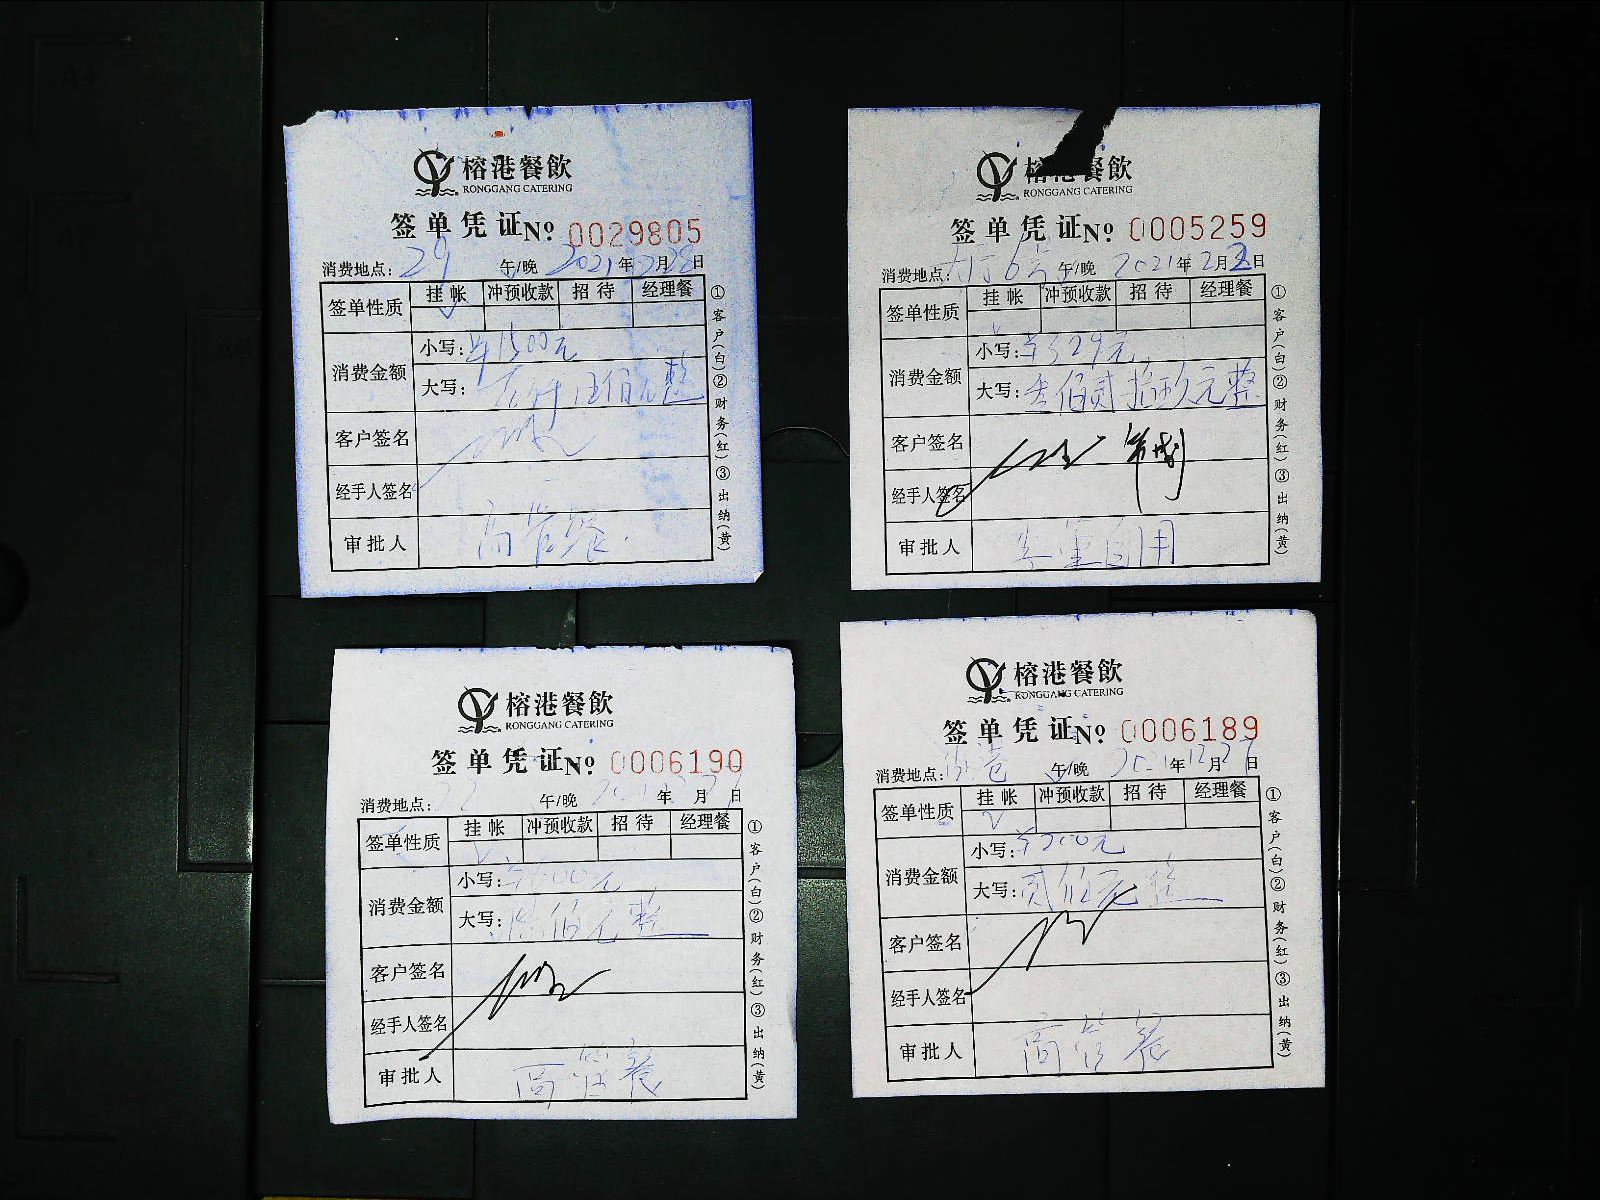 榕港餐飲
RONGGANG CATERING
签单凭证 № 0029805
消费地点: 29 午/晚 2021年12月28日
签单性质 挂帐 冲预收款 招待 经理餐
✓
消费金额
小写: ¥1500元
大写: 壹仟伍佰元整
客户签名
经手人签名
审批人 高管餐
①客户(白)②财务(红)③出纳(黄)
榕港餐飲
RONGGANG CATERING
签单凭证 № 0005259
消费地点: 大厅6号 午/晚 2021年2月2日
签单性质 挂帐 冲预收款 招待 经理餐
消费金额
小写: ¥329元
大写: 叁佰贰拾玖元整
客户签名
经手人签名
审批人 自用
①客户(白)②财务(红)③出纳(黄)
榕港餐飲
RONGGANG CATERING
签单凭证 № 0006190
消费地点: 午/晚 年 月 日
签单性质 挂帐 冲预收款 招待 经理餐
✓
消费金额
小写:
大写: 佰元整
客户签名
经手人签名
审批人 高管餐
①客户(白)②财务(红)③出纳(黄)
榕港餐飲
RONGGANG CATERING
签单凭证 № 0006189
消费地点: 午/晚 2021年12月27日
签单性质 挂帐 冲预收款 招待 经理餐
✓
消费金额
小写: ¥200元
大写: 贰佰元整
客户签名
经手人签名
审批人 高管餐
①客户(白)②财务(红)③出纳(黄)